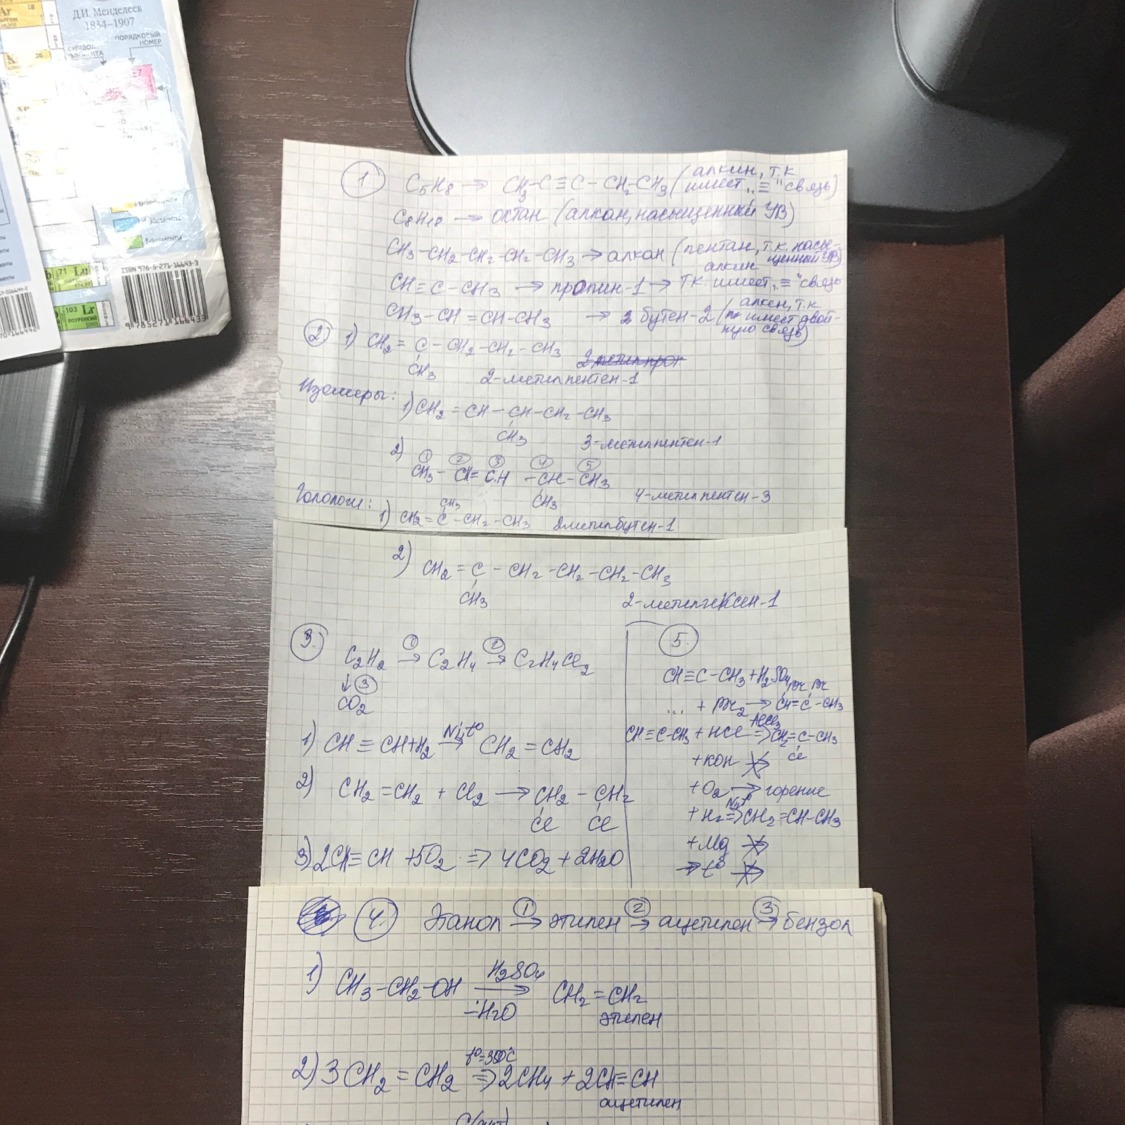 Д.И. Менделеев
1834–1907
ПОРЯДКОВЫЙ
НОМЕР
ISBN 978-5-271-16643-3
9785271166433
1 C5H8 → CH3–C≡C–CH2–CH3 (алкин, т.к
имеет „≡" связь)
C8H18 → октан (алкан, насыщенный УВ)
CH3–CH2–CH2–CH2–CH3 → алкан (пентан, т.к. насы-
щенный УВ)
алкин
CH≡C–CH3 → пропин-1 → т.к имеет „≡" связь
CH3–CH=CH–CH3 → бутен-2 (алкен, т.к
имеет двой
ную связь)
2 1) CH2=C–CH2–CH2–CH3
CH3
2-метилпентен-1
Изомеры:
1) CH2=CH–CH–CH2–CH3
CH3 3-метилпентен-1
2) 1 2 3 4 5
CH3–CH=CH–CH–CH3
CH3 4-метилпентен-3
Гомологи:
CH3
1) CH2=C–CH2–CH3 2метилбутен-1
2) CH2=C–CH2–CH2–CH2–CH3
CH3
2-метилгексен-1
3. C2H2 →(1) C2H4 →(2) C2H4Cl2
↓ 3
CO2
1) CH≡CH+H2 →(Ni,t°) CH2=CH2
2) CH2=CH2 + Cl2 → CH2–CH2
Cl Cl
3) 2CH≡CH+5O2 ⇒ 4CO2+2H2O
5.
CH≡C–CH3+H2SO4
Br Br
... + Br2 → CH=C–CH3
CH≡C–CH3 + HCl →(AlCl3) CH2=C–CH3
Cl
+KOH ↛
+O2 → горение
+H2 →(Ni,t°) CH2=CH–CH3
+Mg ↛
→ t° ↛
4. Этанол →(1) этилен →(2) ацетилен →(3) бензол
1) CH3–CH2–OH →(H2SO4, –H2O) CH2=CH2
этилен
2) 3CH2=CH2 ⇒ 2CH4+2CH≡CH
ацетилен
C(акт)